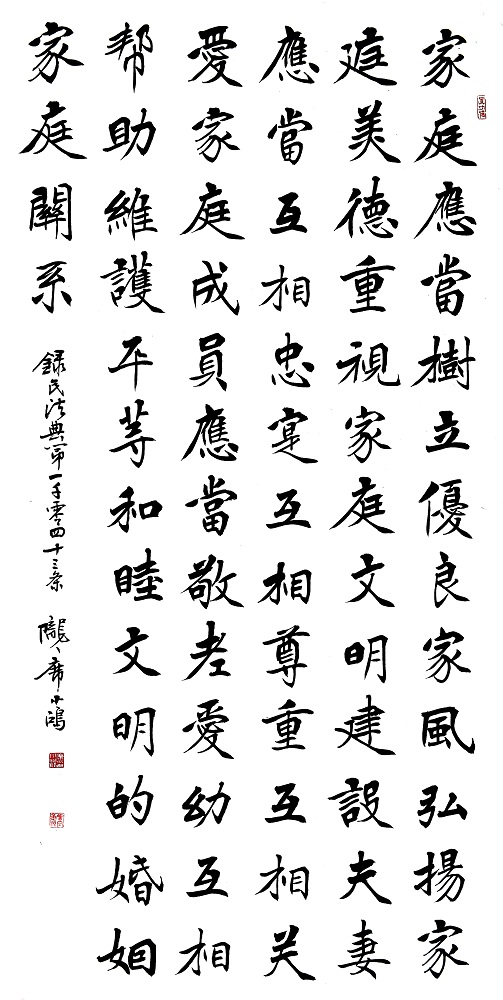 家庭應當樹立優良家風弘揚家
庭美德重視家庭文明建設夫妻
應當互相忠寔互相尊重互相关
愛家庭成員應當敬老愛幼互相
帮助維護平等和睦文明的婚姻
家庭關系
錄民法典第一千零四十三条
隴席小鴻